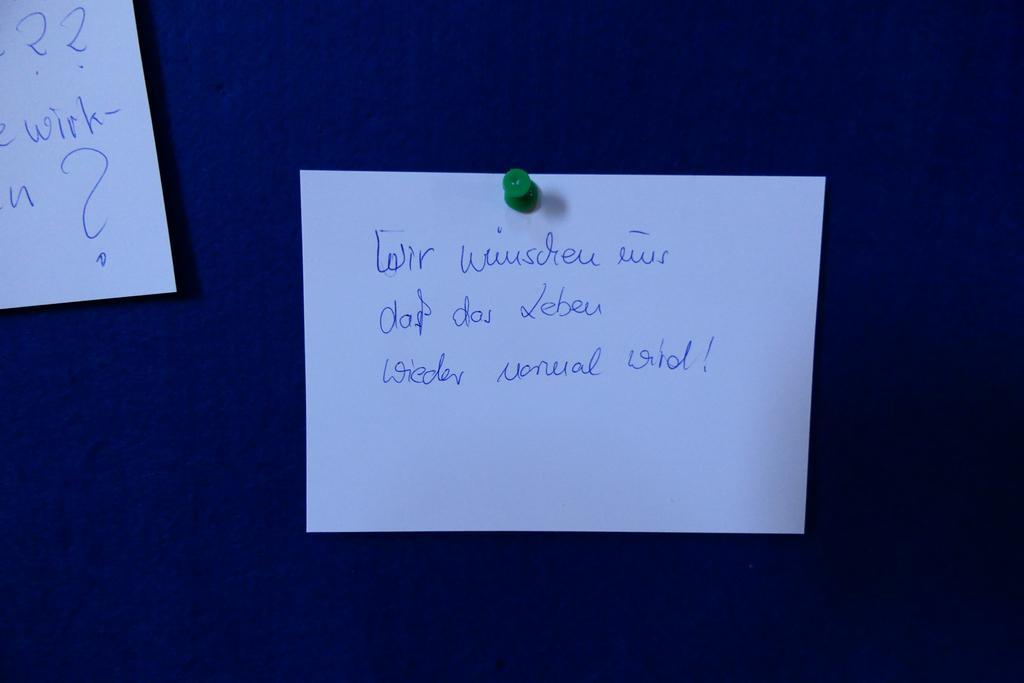 ??
wirk-
?
Wir wünschen uns
daß das Leben
wieder normal wird!